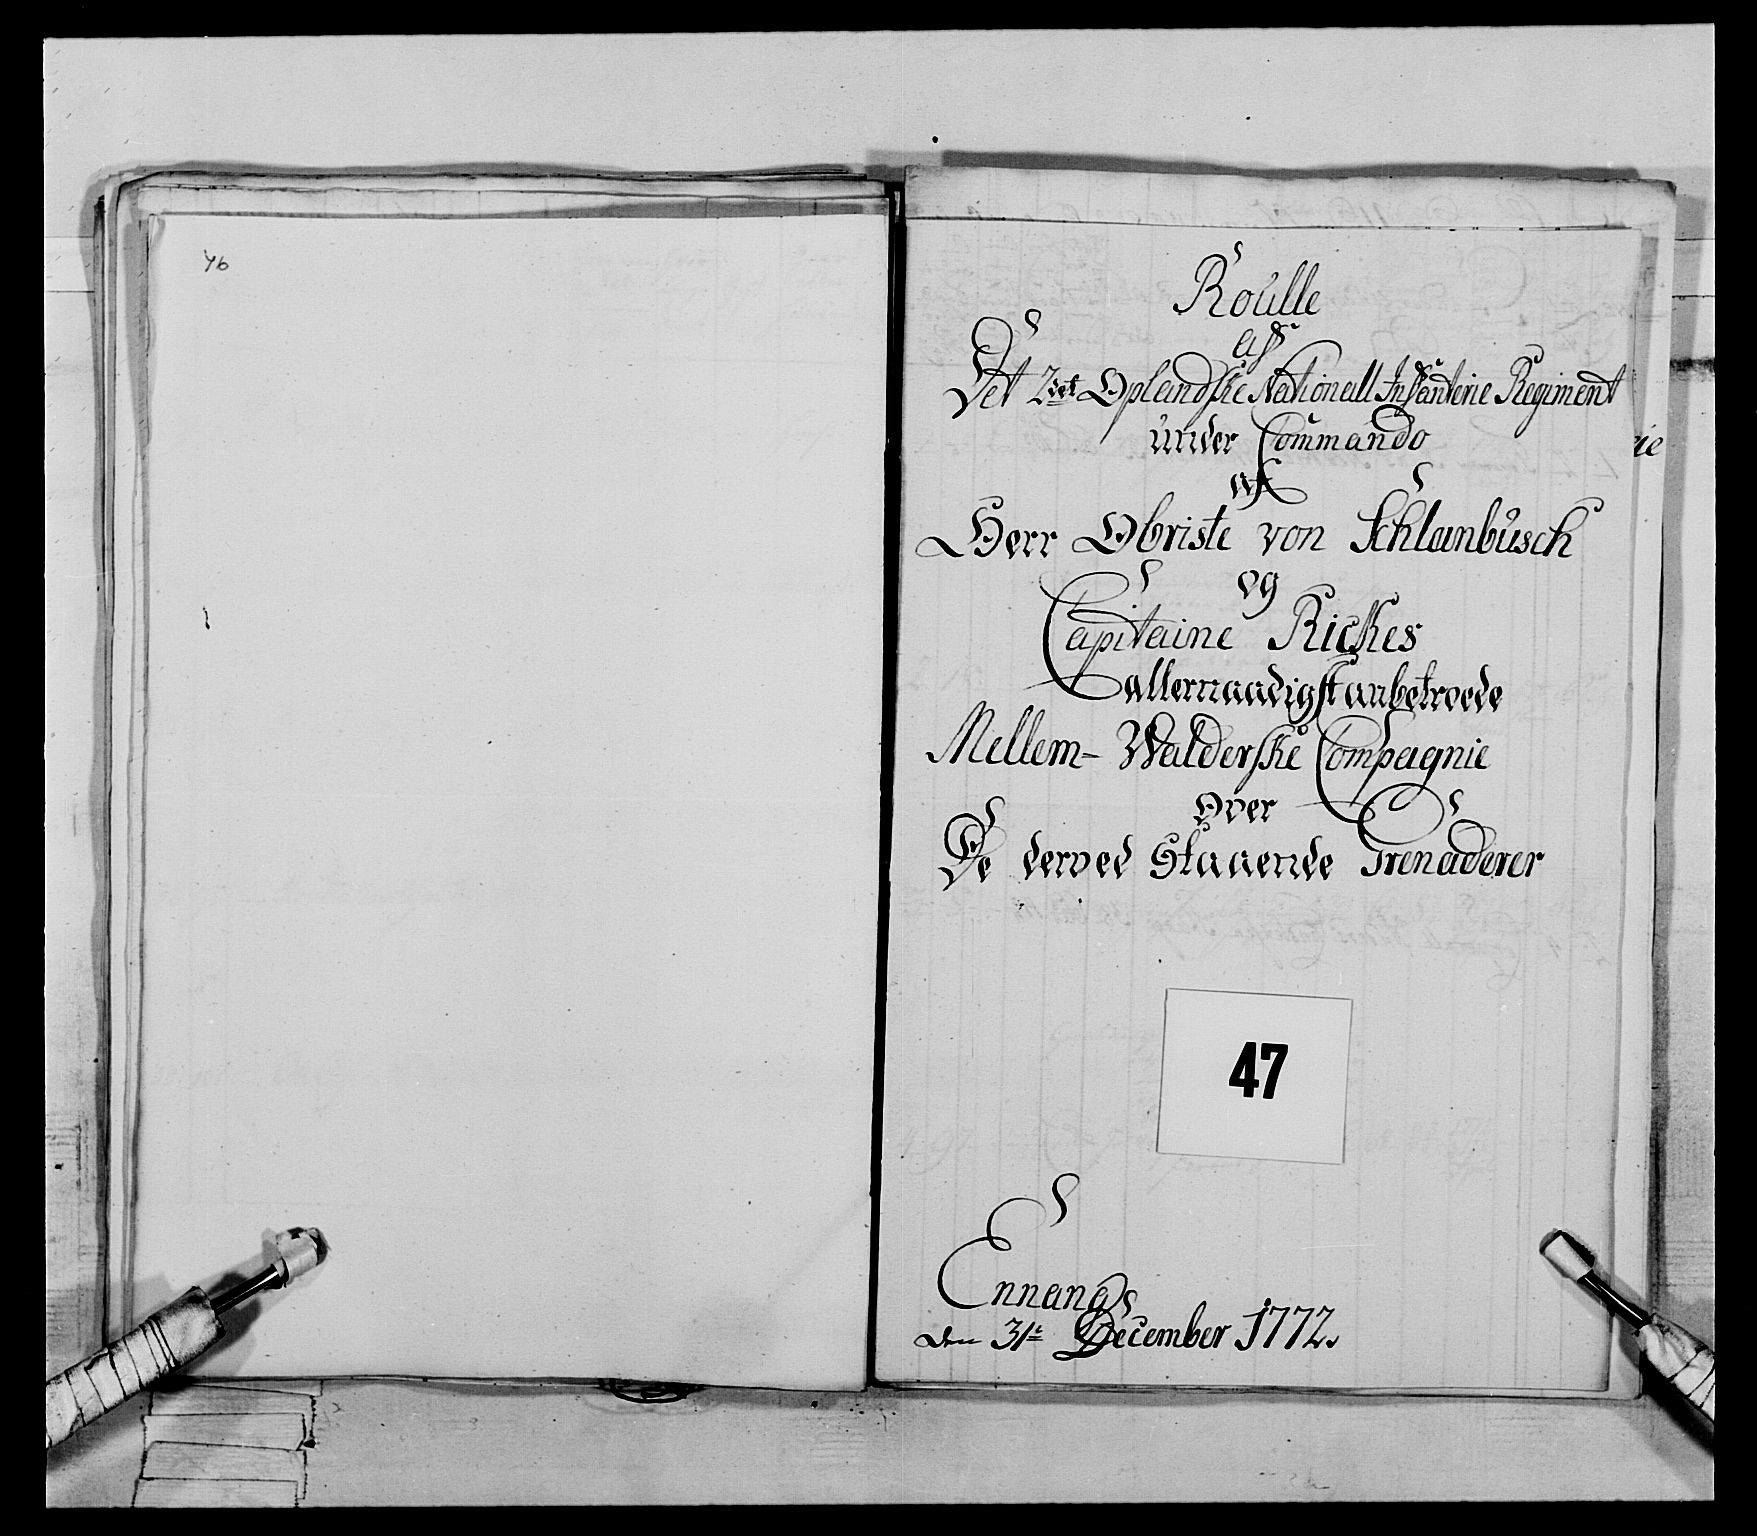 46
Roulle
aff
Det 2det Oplandske Nationall Infanterie Regiment
under Commando
af
Herr Obriste von Schlanbusch
og
Capitaine Rickes
allernaadigst anbetroede
Mellem- Walderske Compagnie
Over
De derved Staaende Grenaderer
47
Ennang
den 31te December 1772.